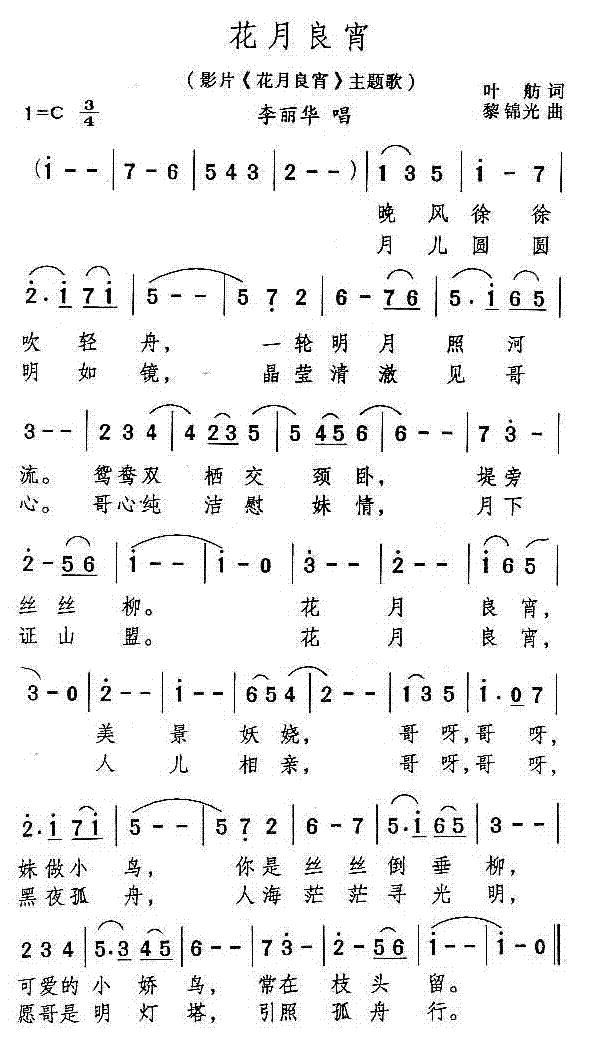 花月良宵
（影片《花月良宵》主题歌）
叶 舫 词
1=C 3/4 李丽华 唱 黎锦光 曲
(i - - | 7 - 6 | 5 4 3 | 2 - - ) | 1 3 5 | i - 7 |
晚 风 徐 徐
月 儿 圆 圆
2̇. i 7 i | 5 - - | 5 7̣ 2 | 6 - 7 6 | 5. i 6 5 |
吹 轻 舟， 一 轮 明 月 照 河
明 如 镜， 晶 莹 清 澈 见 哥
3 - - | 2 3 4 | 4 2 3 | 5 - - | 5 4 5 6 | 6 - - | 7 3̇ - |
流。 鸳 鸯 双 栖 交 颈 卧， 堤 旁
心。 哥 心 纯 洁 慰 妹 情， 月 下
2̇ - 5 6 | i - - | i - 0 | 3̇ - - | 2̇ - - | i 6 5 |
丝 丝 柳。 花 月 良 宵，
证 山 盟。 花 月 良 宵，
3 - 0 | 2̇ - - | i - - | 6 5 4 | 2 - - | 1 3 5 | i. 0 7 |
美 景 妖 娆， 哥 呀，哥 呀，
人 儿 相 亲， 哥 呀，哥 呀，
2̇. i 7 i | 5 - - | 5 7̣ 2 | 6 - 7 | 5. i 6 5 | 3 - - |
妹 做 小 鸟， 你 是 丝 丝 倒 垂 柳，
黑 夜 孤 舟， 人 海 茫 茫 寻 光 明，
2 3 4 | 5. 3 4 5 | 6 - - | 7 3̇ - | 2̇ - 5 6 | i - - | i - 0 ‖
可 爱 的 小 娇 鸟， 常 在 枝 头 留。
愿 哥 是 明 灯 塔， 引 照 孤 舟 行。